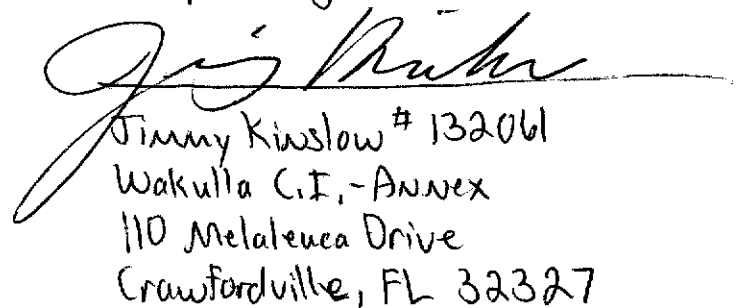 Jimmy Kinslow # 132061
Wakulla C.I.-Annex
110 Melaleuca Drive
Crawfordville, FL 32327